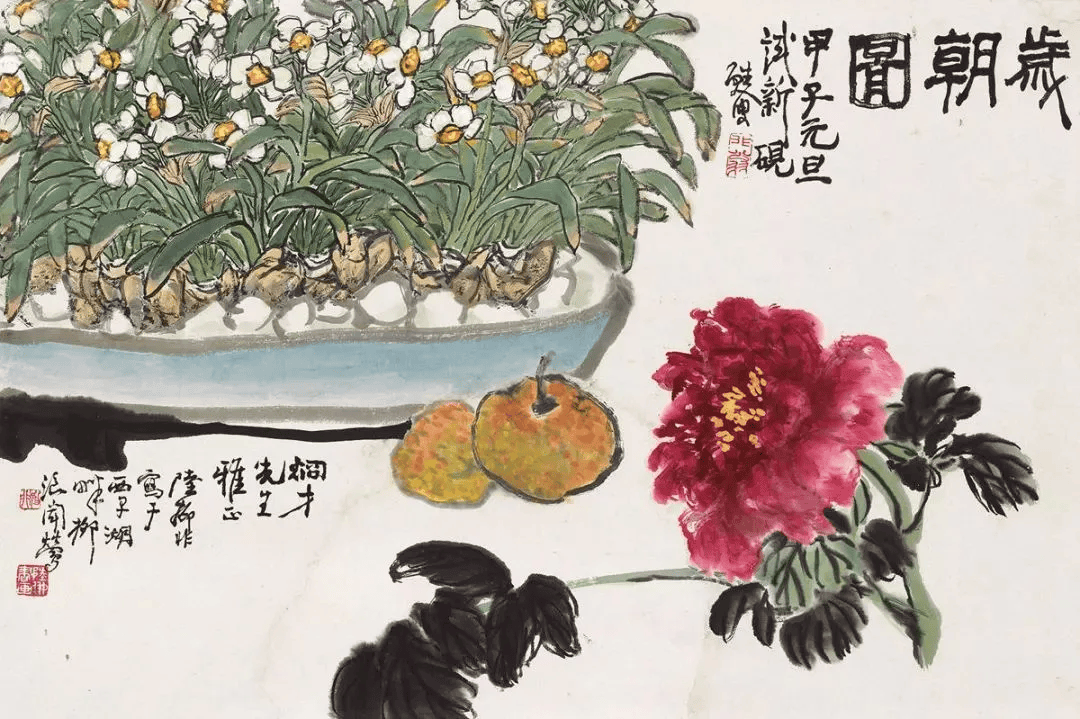 歲朝圖
甲子元旦
試新硯
叟
才
先生
雅正
陸抑非
寫于
西子湖
畔柳
浪聞鶯